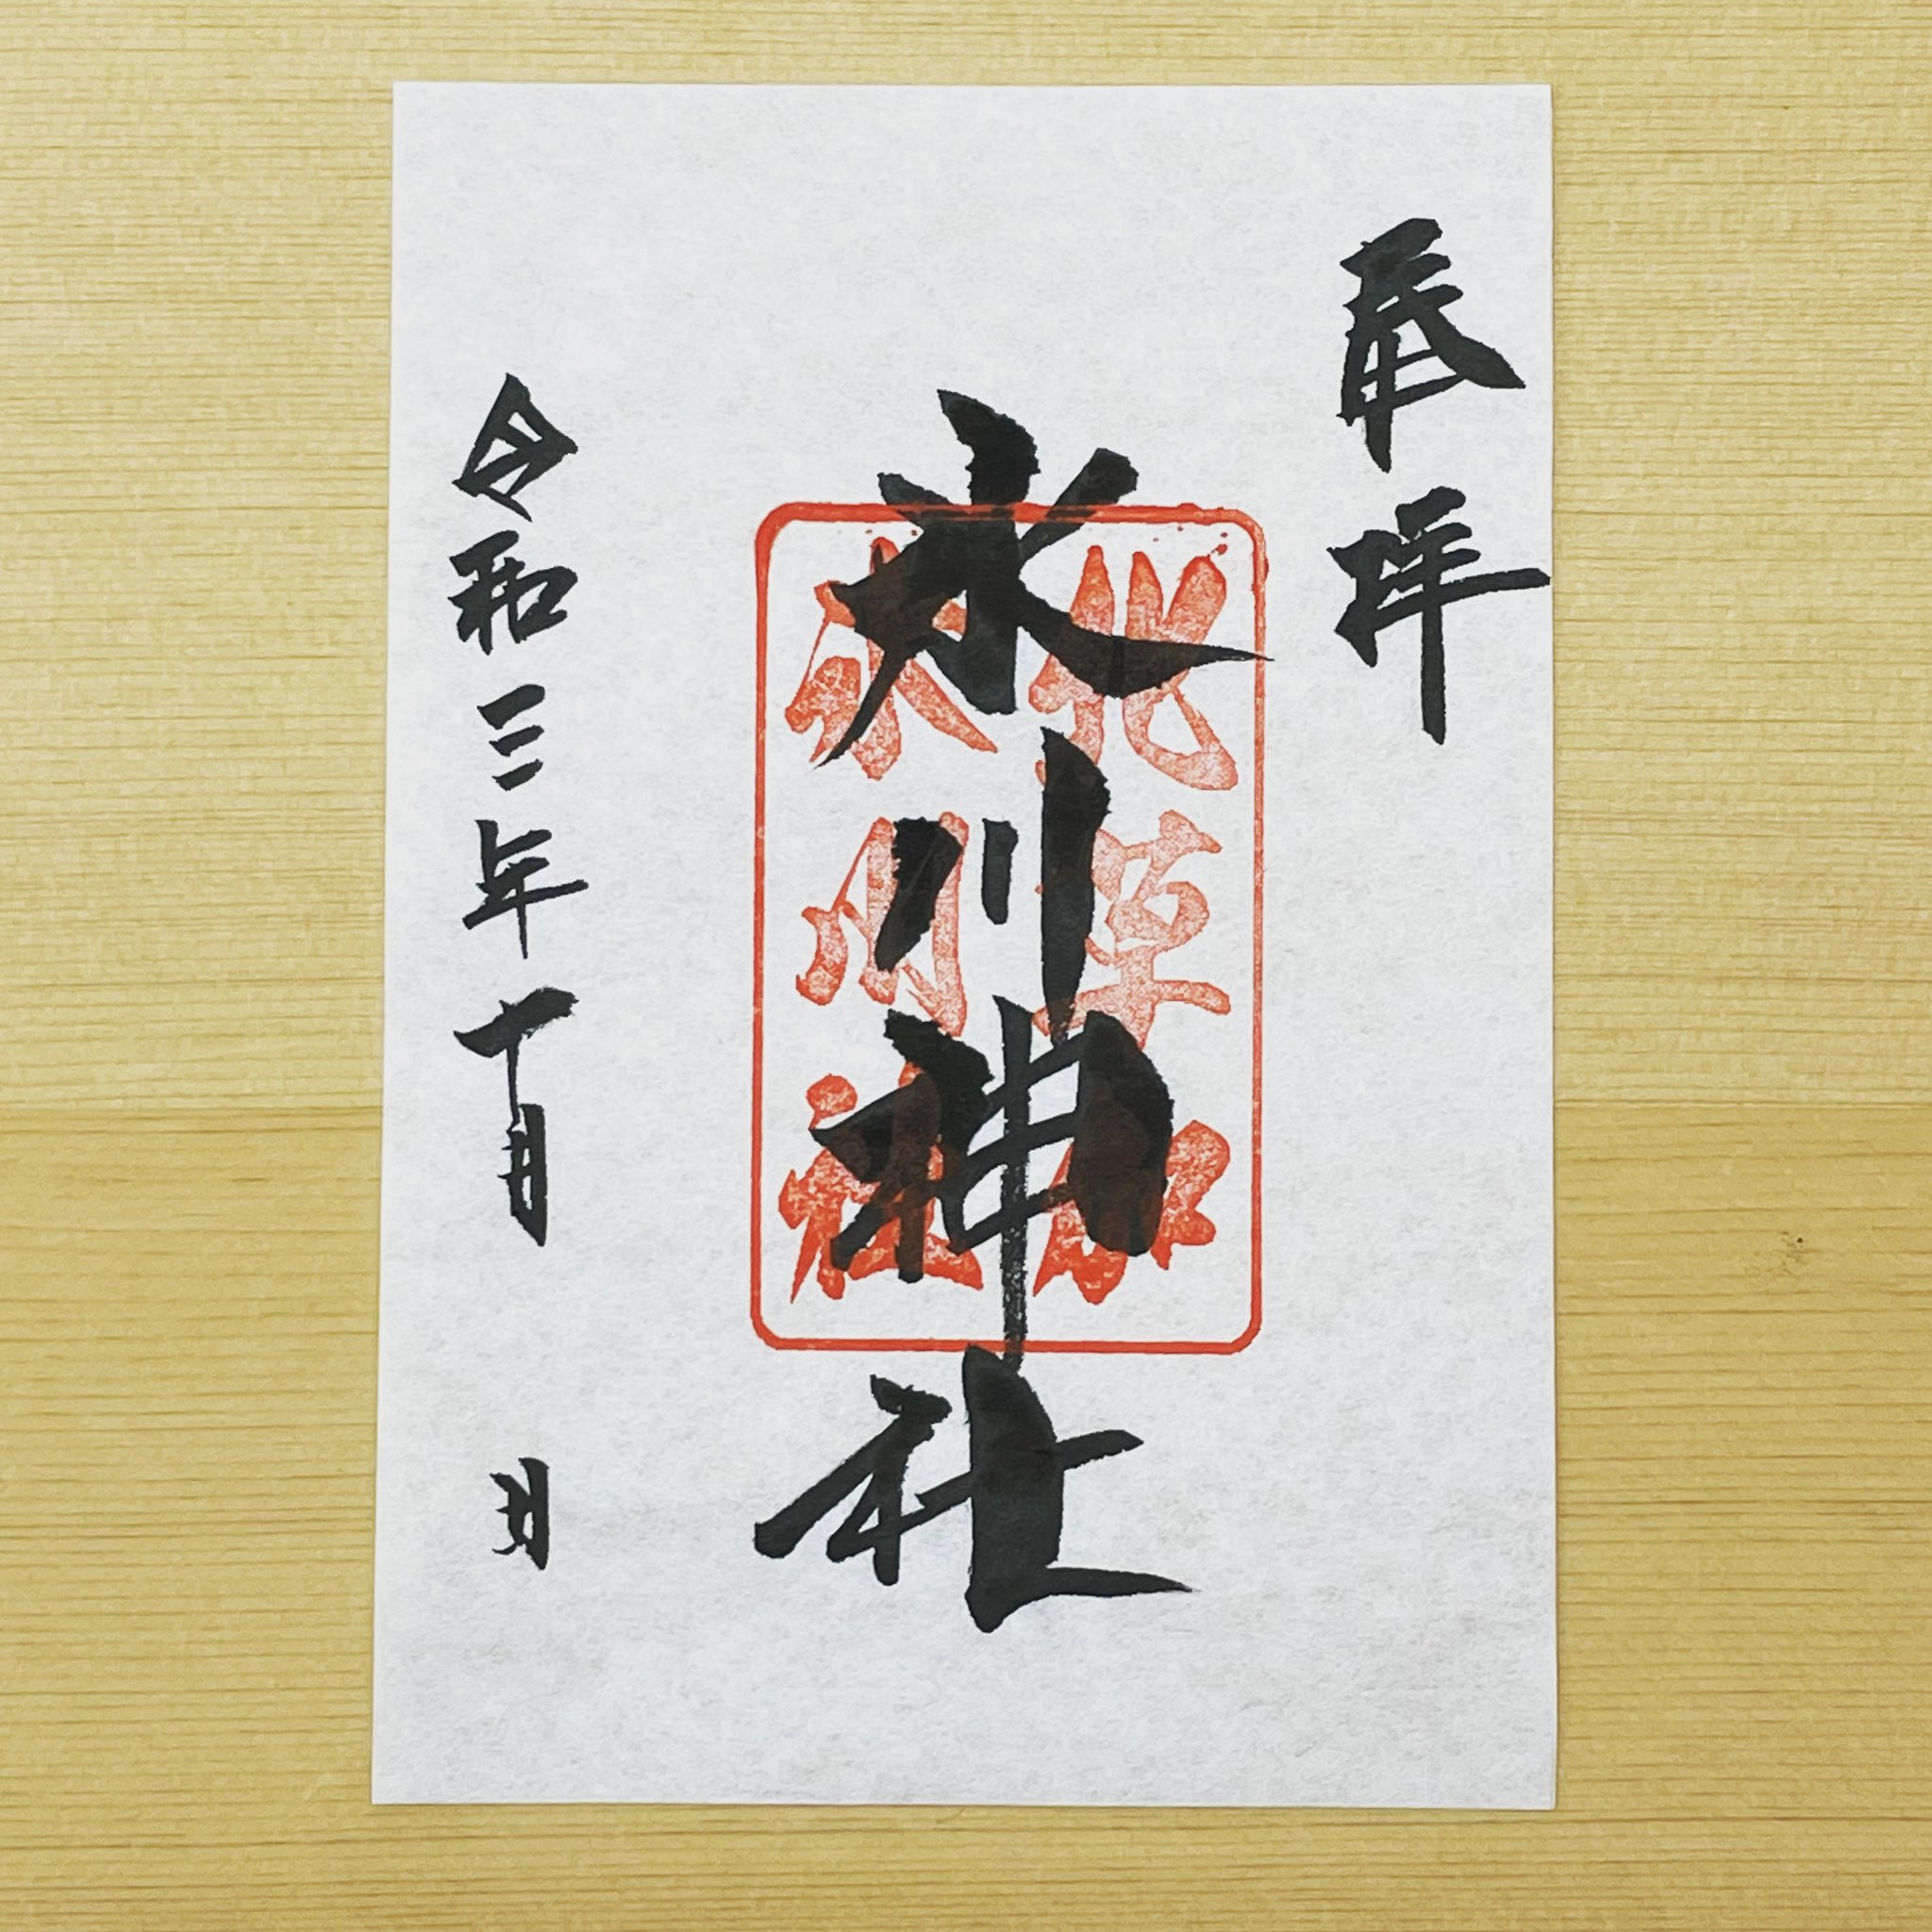 奉拝
氷川神社
北草加
氷川社
令和三年十月 日